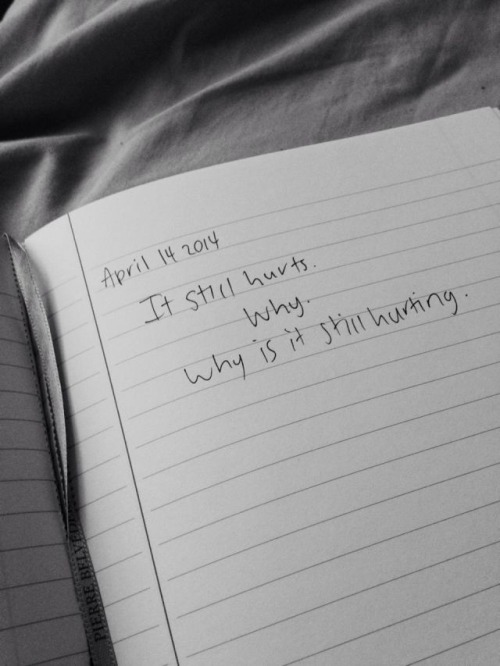 April 14 2014
It still hurts.
Why.
Why is it still hurting.
PIERRE BELVEDERE